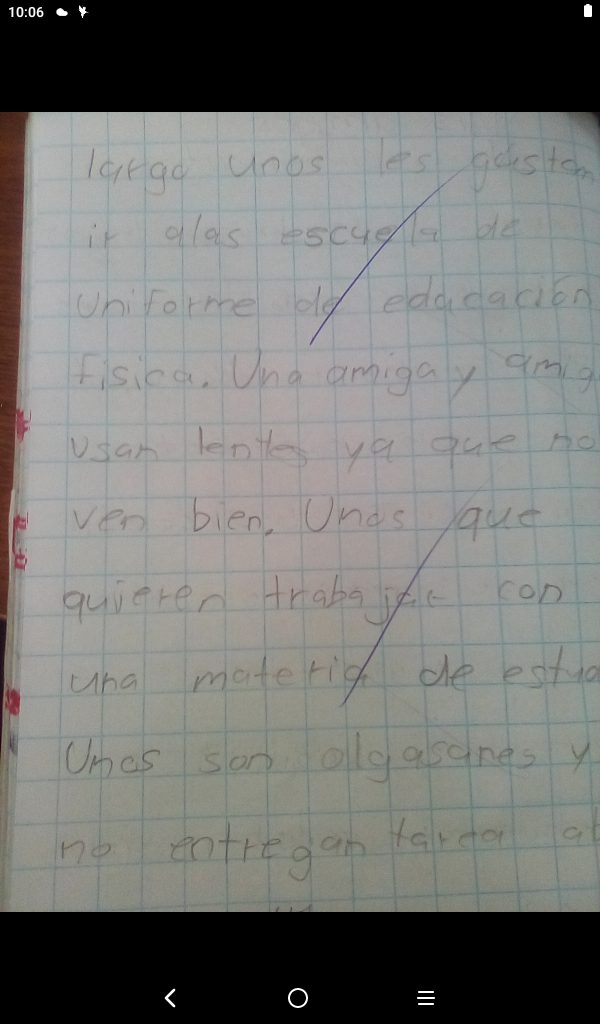 10:06
largo unos les gustan
ir alas escuela de
uniforme de educación
fisica. Una amiga y amig
usan lentes ya que no
ven bien. Unos que
quieren trabajar con
una materia de estud
Unos son olgasanes y
no entregan tarea at